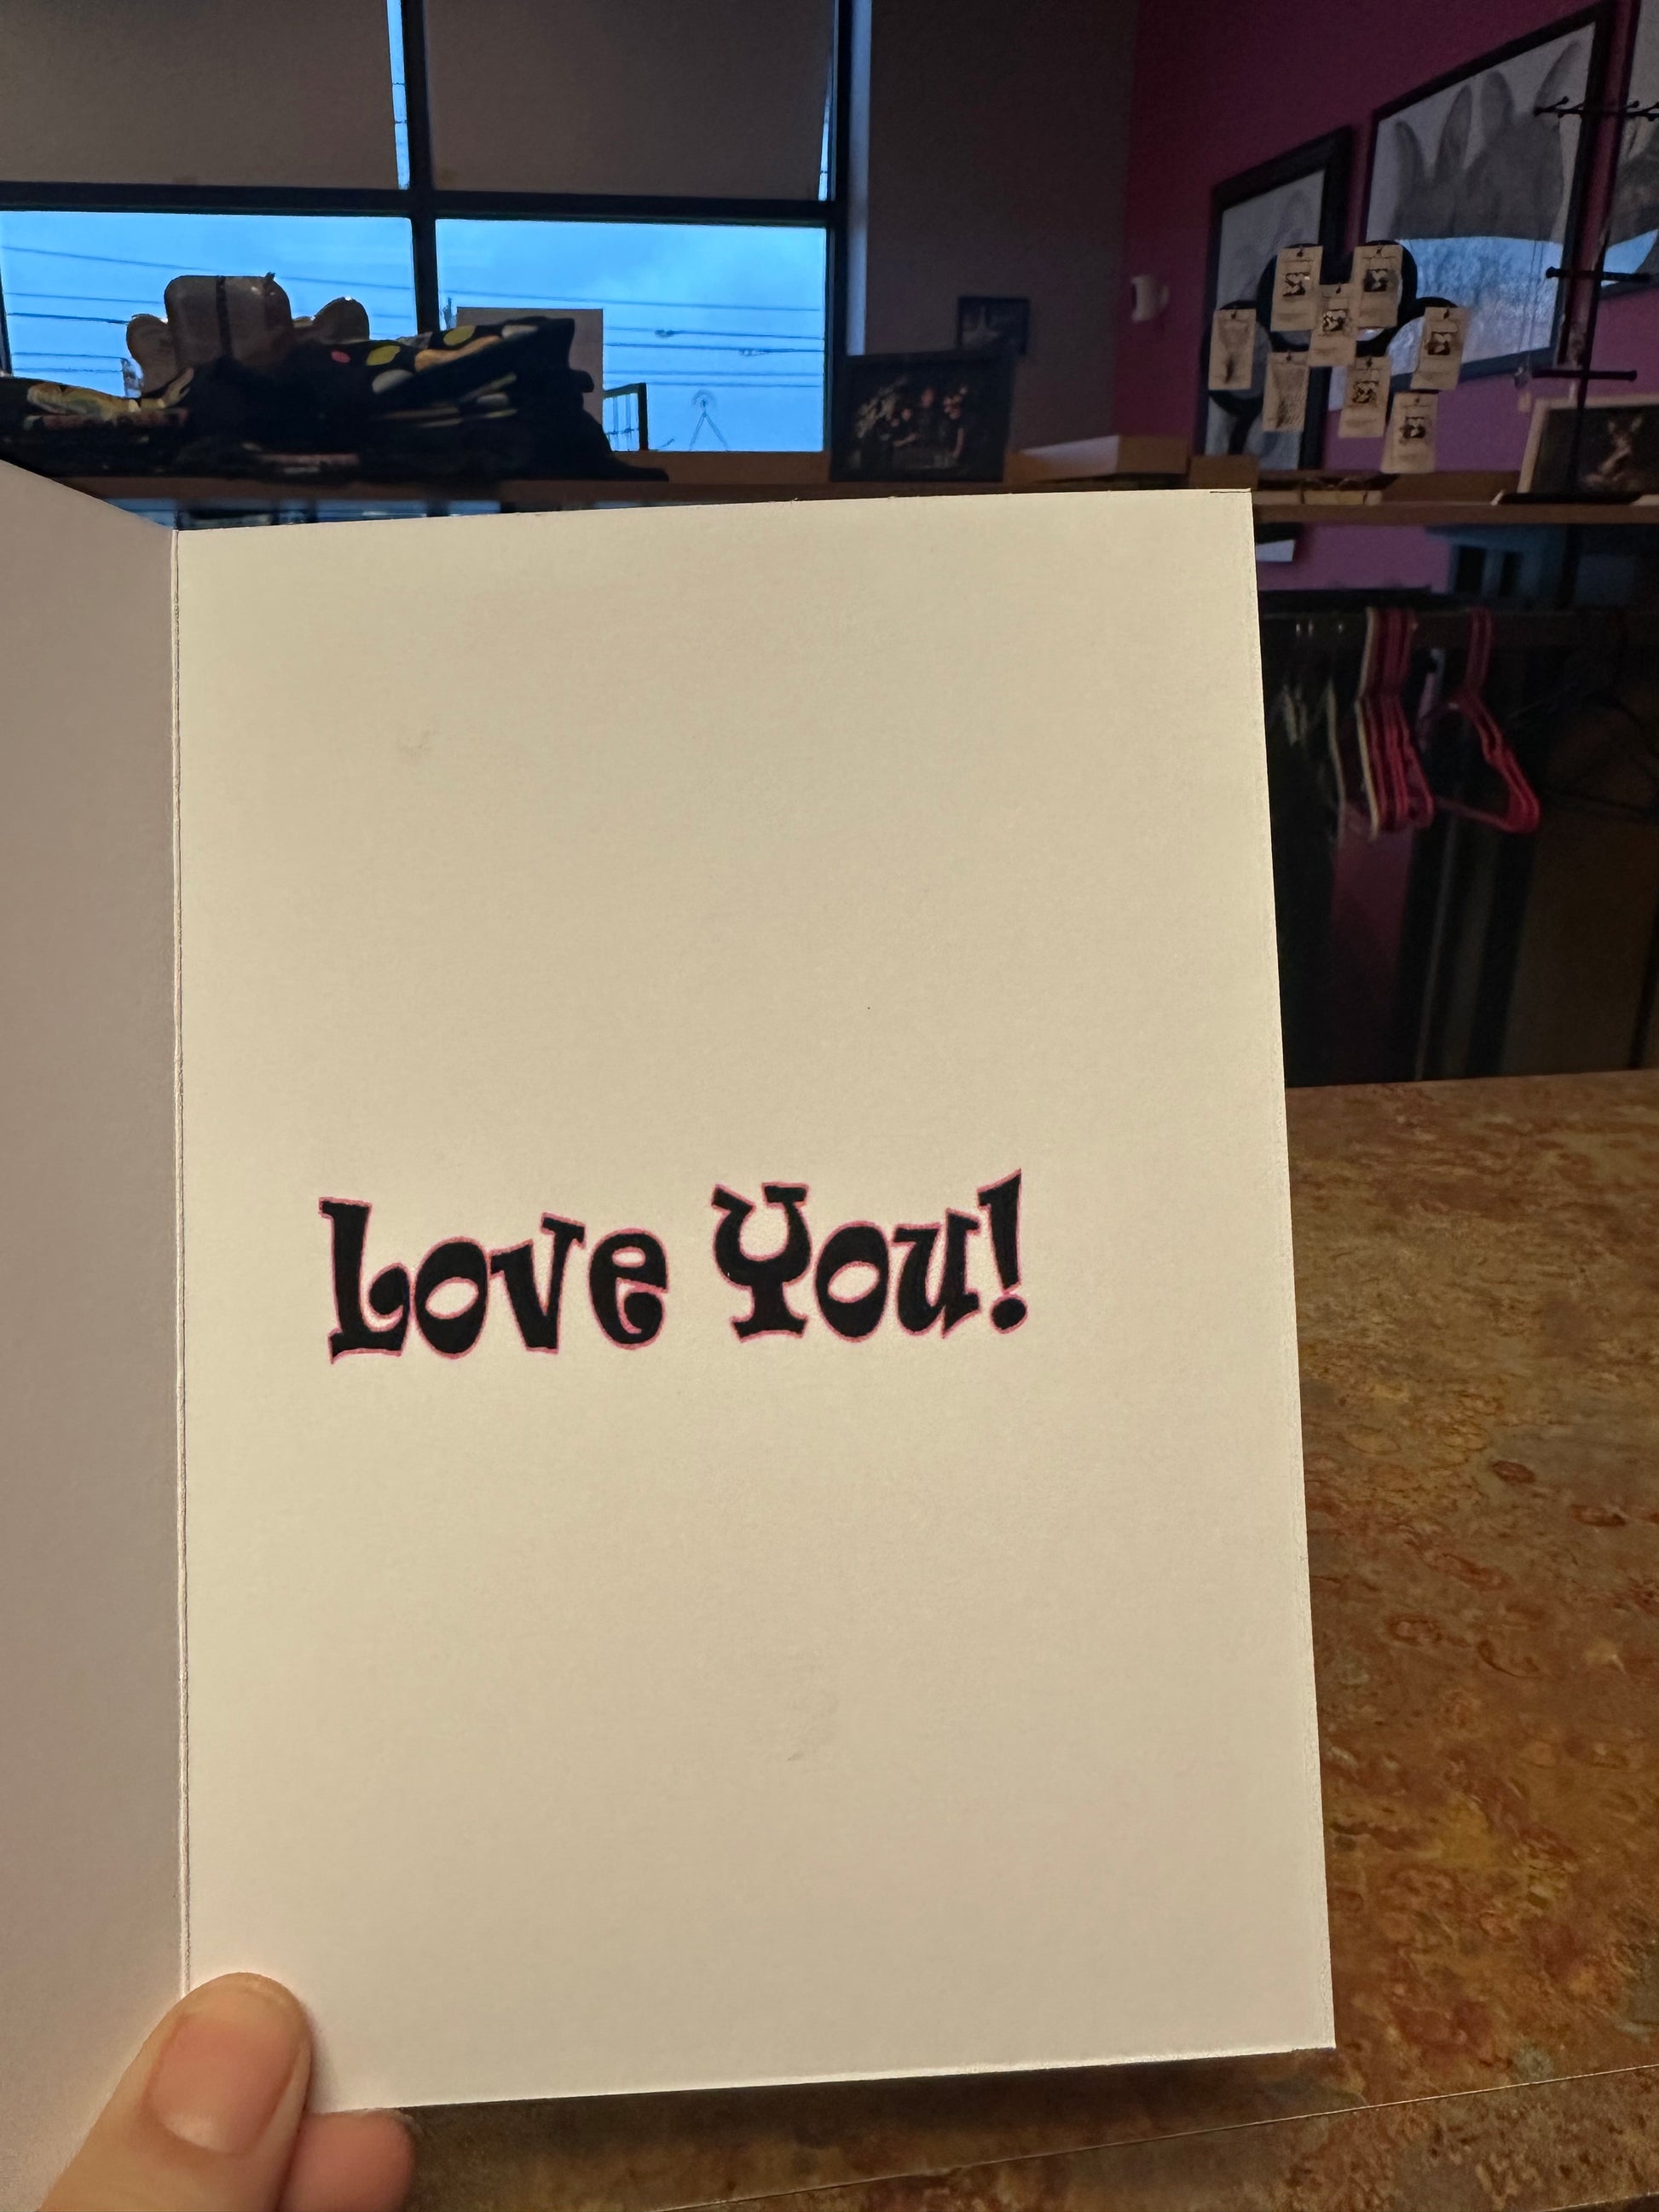 Love You!